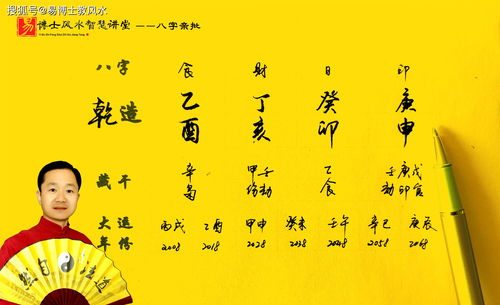 搜狐号@易博士救风水
易 博士风水智慧讲堂 ——八字亲批
八字 食 財 日 印
乾造 乙 丁 癸 庚
酉 亥 卯 申
藏干 辛 甲壬 乙 壬庚戊
枭 伤劫 食 劫印官
大运 丙戌 乙酉 甲申 癸未 壬午 辛巳 庚辰
年份 2008 2018 2028 2038 2048 2058 2068
然自法道